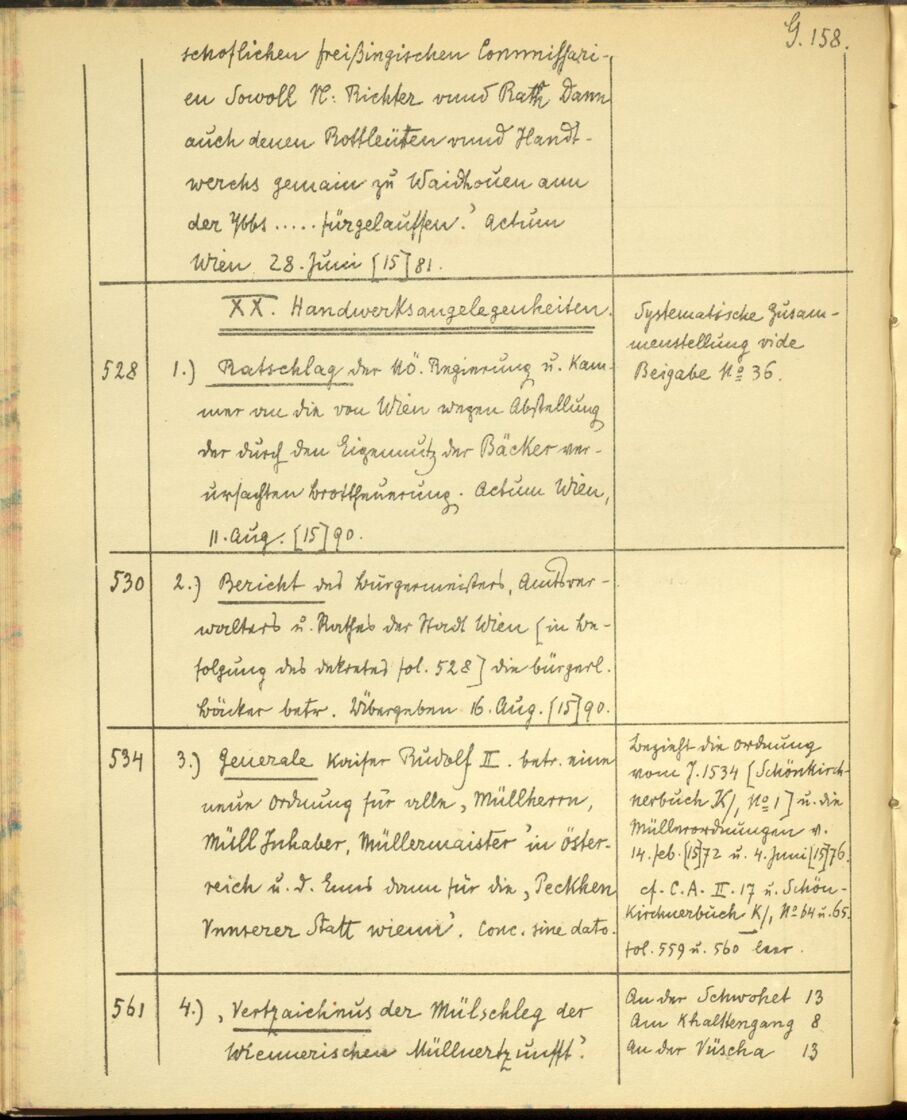 G. 158.
schoflichen freißingischen Commissari-
en Sowoll N: Richter vnnd Rath Dann
auch denen Rottleüten vnnd Handt-
werchs gemain zu Waidhouen ann
der Ybbs ..... fürgelauffen.' Actum
Wien 28. Juni [15]81.
XX. Handwerksangelegenheiten.
Systematische Zusam-
menstellung vide
Beigabe No 36.
528 1.) Ratschlag der NÖ. Regierung u. Kam-
mer an die von Wien wegen Abstellung
der durch den Eigennutz der Bäcker ver-
ursachten Brottheuerung. Actum Wien,
11. Aug. [15]90.
530 2.) Bericht des Bürgermeisters, Amtsver-
walters u. Rathes der Stadt Wien [in Be-
folgung des Dekretes fol. 528] die bürgerl.
Bäcker betr. Übergeben 16. Aug. [15]90.
534 3.) Generale Kaiser Rudolf II. betr. eine
neue Ordnung für alle „Müllherrn,
Müll Inhaber, Müllermaister' in Öster-
reich u. d. Enns dann für die „Peckhen
Vnnserer Statt wienn'. Conc. sine dato.
Bezieht die Ordnung
vom J. 1534 [Schönkirch-
nerbuch K/, No 1] u. die
Müllerordnungen v.
14. Feb. [15]72 u. 4. Juni [15]76.
cf. C. A. II. 17 u. Schön-
kirchnerbuch K/, No 64 u. 65.
fol. 559 u. 560 leer.
561 4.) „Vertzaichnus der Mülschleg der
Wiennerischen Müllnertzunfft'.
An der Schwohet 13
Am Khaltengang 8
An der Vüscha 13